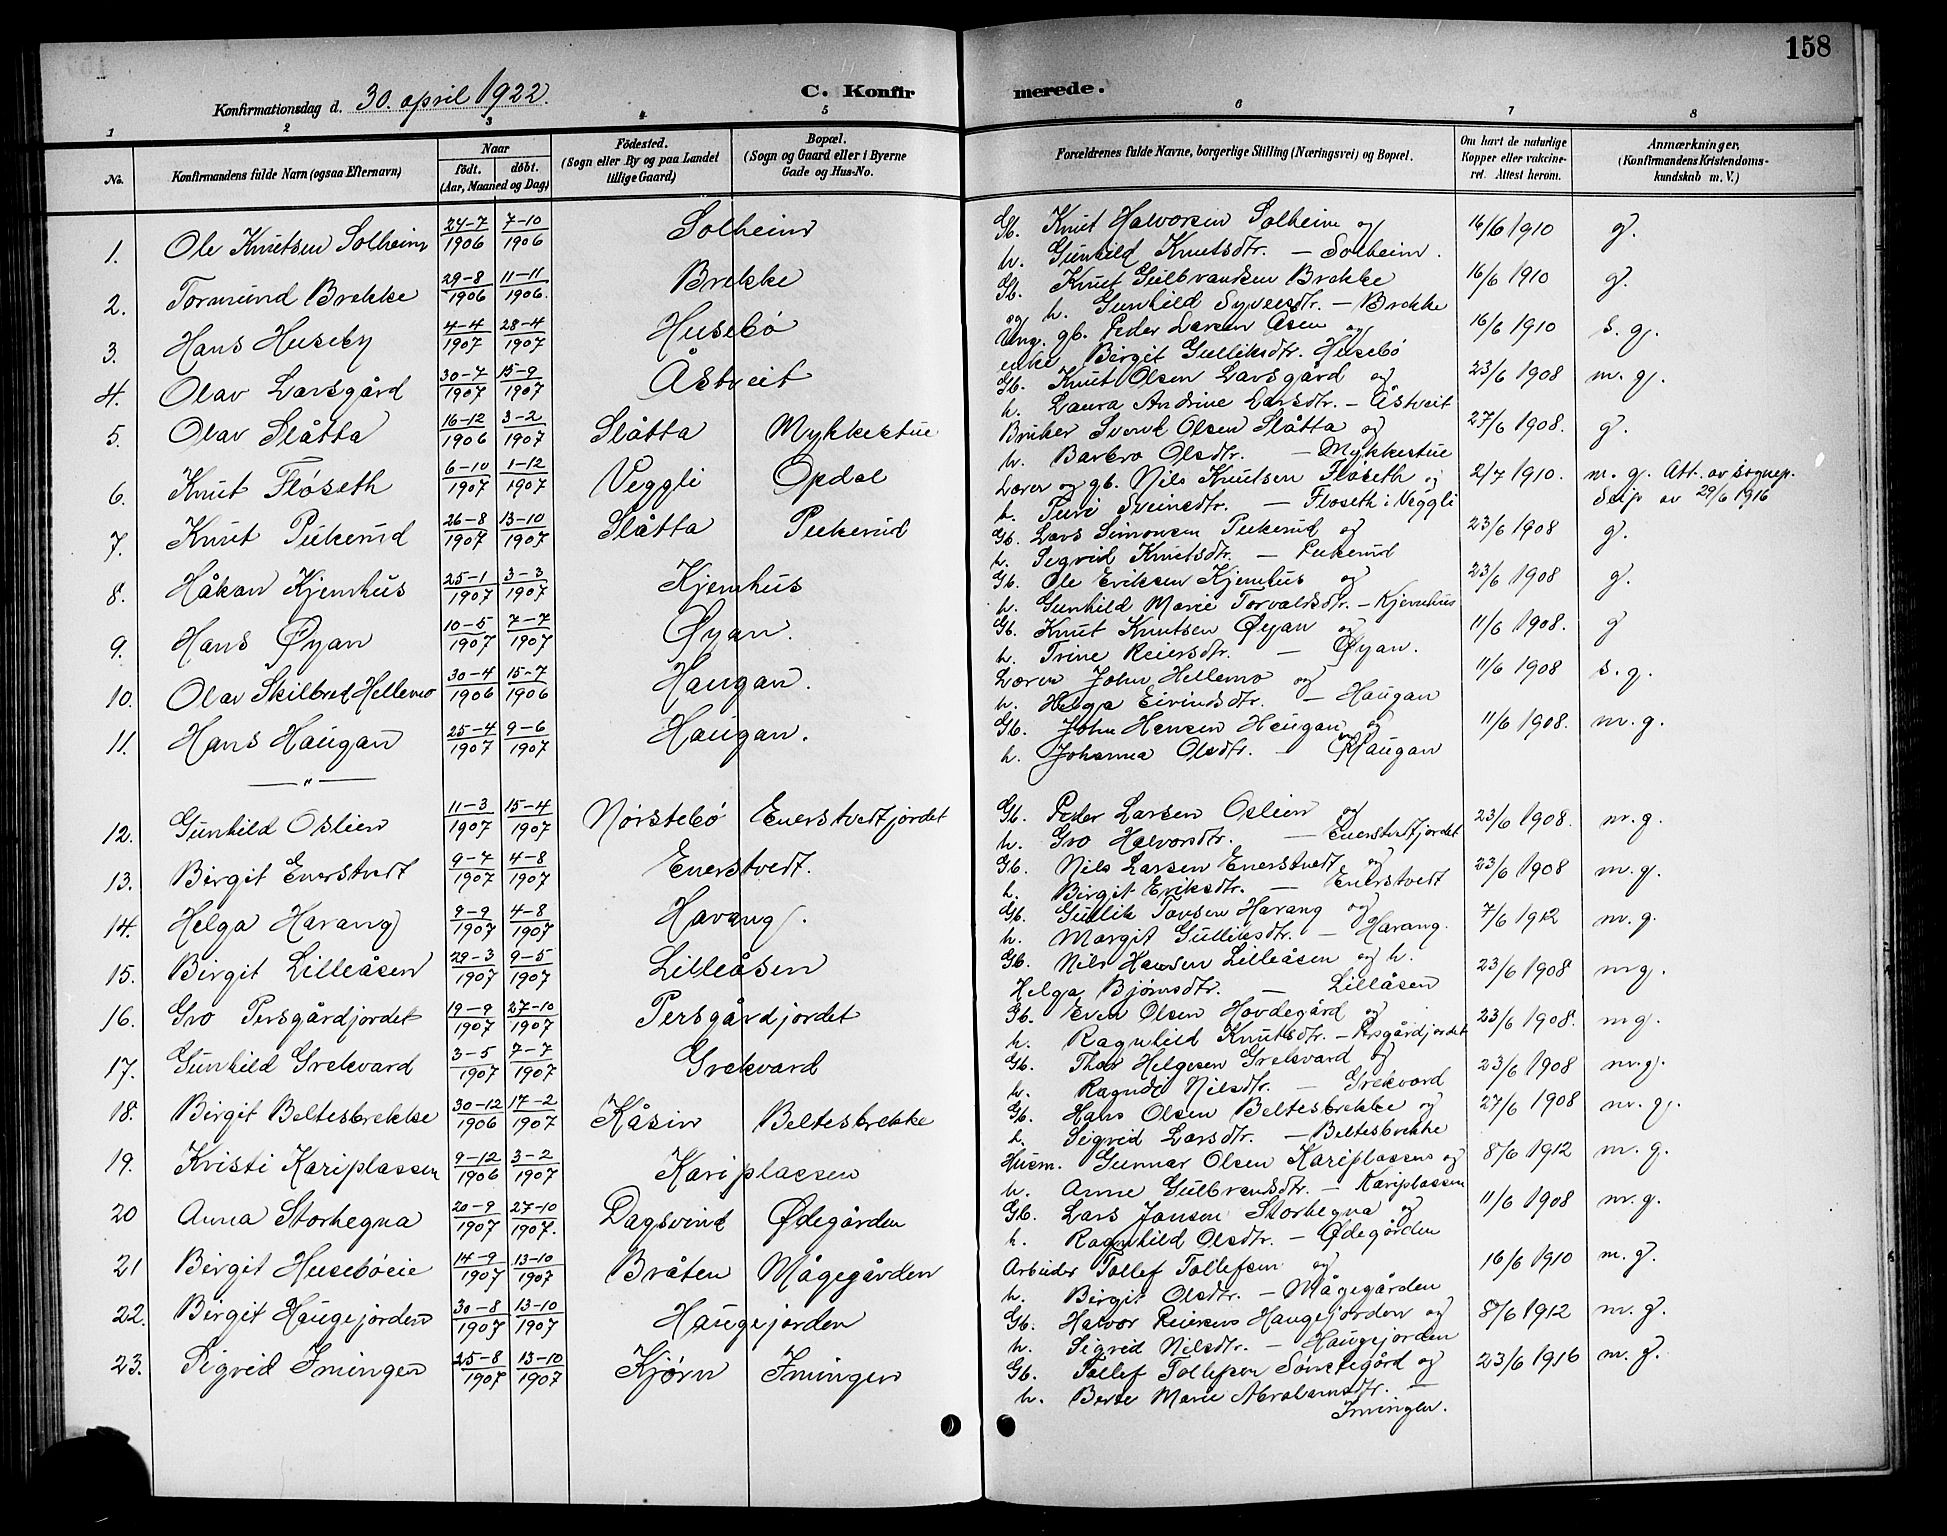 158
Konfirmationsdag d. 30. april 1922. C. Konfirmerede.
1 2 3 4 5 6 7 8
No. Konfirmandens fulde Navn (ogsaa Efternavn) Naar födt. döbt. (Aar, Maaned og Dag) Födested. (Sogn eller By og paa Landet tillige Gaard) Bopæl. (Sogn og Gaard eller i Byerne Gade og Hus-No. Forældrenes fulde Navne, borgerlige Stilling (Næringsvei) og Bopæl. Om havt de naturlige Kopper eller vakcineret. Attest herom. Anmærkninger, (Konfirmandens Kristendomskundskab m. V.)
1. Ole Knutsen Solheim 24-7 1906 7-10 1906 Solheim Gb. Knut Halvorsen Solheim og 16/6 1910 g.
h. Gunhild Knutsdtr. — Solheim.
2. Tormund Brekke 29-8 1906 11-11 1906. Brekke Gb. Knut Gulbrandsen Brekke 16/6 1910 g.
og h. Gunhild Syversdtr. — Brekke
3. Hans Huseby 4-4 1907 28-4 1907 Husebö Ung. gb. Peder Larsen Åsen og 16/6 1910 s. g.
enke Birgit Gulliksdtr. Husebö
4. Olav Larsgård 30-7 1907 15-9 1907 Åstveit Gb. Knut Olsen Larsgård og 23/6 1908 m. g.
h. Laura Andrine Larsdtr. — Åstveit
5. Olav Slåtta 16-12 1906 3-2 1907 Slåtta Mykkestue Bruker Svend Olsen Slåtta og 27/6 1908. g.
h. Barbro Olsdtr. — Mykkestue
6. Knut Flóseth 6-10 1907 1-12 1907 Veggli Opdal Lærer og gb. Nils Knutsen Floseth og 2/7 1910. m. g. Att. av sognep.
h. Turi Sveinsdtr. — Floseth i Veggli Seip av 29/6 1916
7. Knut Pukerud 26-8 1907 13-10 1907 Slåtta Pukerud Gb. Lars Simonsen Pukerud og 23/6 1908 g.
h. Sigrid Knutsdtr. — Pukerud
8. Håkon Kjemhus 25-1 1907 3-3 1907 Kjemhus Gb. Ole Eriksen Kjemhus og 23/6 1908 g.
h. Gunhild Marie Torvaldsdtr. — Kjemhus
9. Hans Øyan 10-5 1907 7-7 1907 Øyan. Gb. Knut Knutsen Øyan og 11/6 1908. g
h. Trine Reiersdtr. — Øyan.
10. Olav Skilbred Hellemo 30-4 1906 15-7 1906 Haugan. Lærer John Hellemo og 11/6 1908 s. g.
h. Helga Eivindsdtr. — Haugan
11. Hans Haugan 25-4 1907 9-6 1907 Haugan. Gb. John Hansen Haugan og 11/6 1908. m. g.
h. Johanna Olsdtr. — Haugan
— " —
12. Gunhild Oslien 11-3 1907 15-4 1907 Nörstebö Enerstvedtjordet Gb. Peder Larsen Oslien og 23/6 1908. m. g.
h. Gro Halvorsdtr. — Enerstvedtjordet
13. Birgit Enerstvedt 9-7 1907 4-8 1907 Enerstvedt. Gb. Nils Larsen Enerstvedt og 23/6 1908 m. g.
h. Birgit Eriksdtr. — Enerstvedt
14. Helga Harang 9-9 1907 4-8 1907 Harang. Gb. Gullik Tovsen Harang og 7/6 1912 m. g.
h. Margit Gulliksdtr. — Harang.
15. Birgit Lilleåsen 29-3 1907 9-5 1907 Lilleåsen Gb. Nils Hansen Lilleåsen og h. 23/6 1908 m g.
Helga Bjørnsdtr. — Lillåsen
16. Gro Persgårdjordet 19-9 1907 27-10 1907 Persgårdjordet Gb. Even Olsen Hovdegård og 23/6 1908. m g.
h. Ragnhild Knutsdtr. — Persgårdjordet
17. Gunhild Grekvard 3-5 1907 7-7 1907 Grekvard Gb. Thor Helgesen Grekvard og 23/6 1908 m. g.
h. Ragndi Nilsdtr. — Grekvard
18. Birgit Beltesbrekke 30-12 1906 17-2 1907 Kåsin Beltesbrekke Gb. Hans Olsen Beltesbrekke og 27/6 1908 m. g.
h. Sigrid Larsdtr. — Beltesbrekke
19. Kristi Kariplassen 9-12 1906 3-2 1907 Kariplassen Husm. Gunnar Olsen Kariplassen og 8/6 1912 m. g.
h. Anne Gulbrandsdtr. — Kariplassen
20 Anna Storhegna 20-9 1907 27-10 1907. Dagsvind Ødegården Gb. Lars Jansen Storhegna og 11/6 1908 m. g.
h. Ragnhild Olsdtr. — Ødegården
21 Birgit Husebóeie 14-9 1907 13-10 1907 Bråten Mågegården Arbeider Tollef Tollefsen og 16/6 1910 m. g.
h. Birgit Olsdtr. — Mågegården
22. Birgit Haugejorden 30-8 1907 13-10 1907 Haugejorden Gb. Halvor Reiersen Haugejorden og 8/6 1912 m. g.
h. Sigrid Nilsdtr. — Haugejorden
23. Sigrid Imingen 25-8 1907 13-10 1907 Kjørn Imingen Gb. Tollef Tollefsen Sönstegård og 23/6 1916 m. g.
h. Berte Marie Abrahamsdtr. —
Imingen.